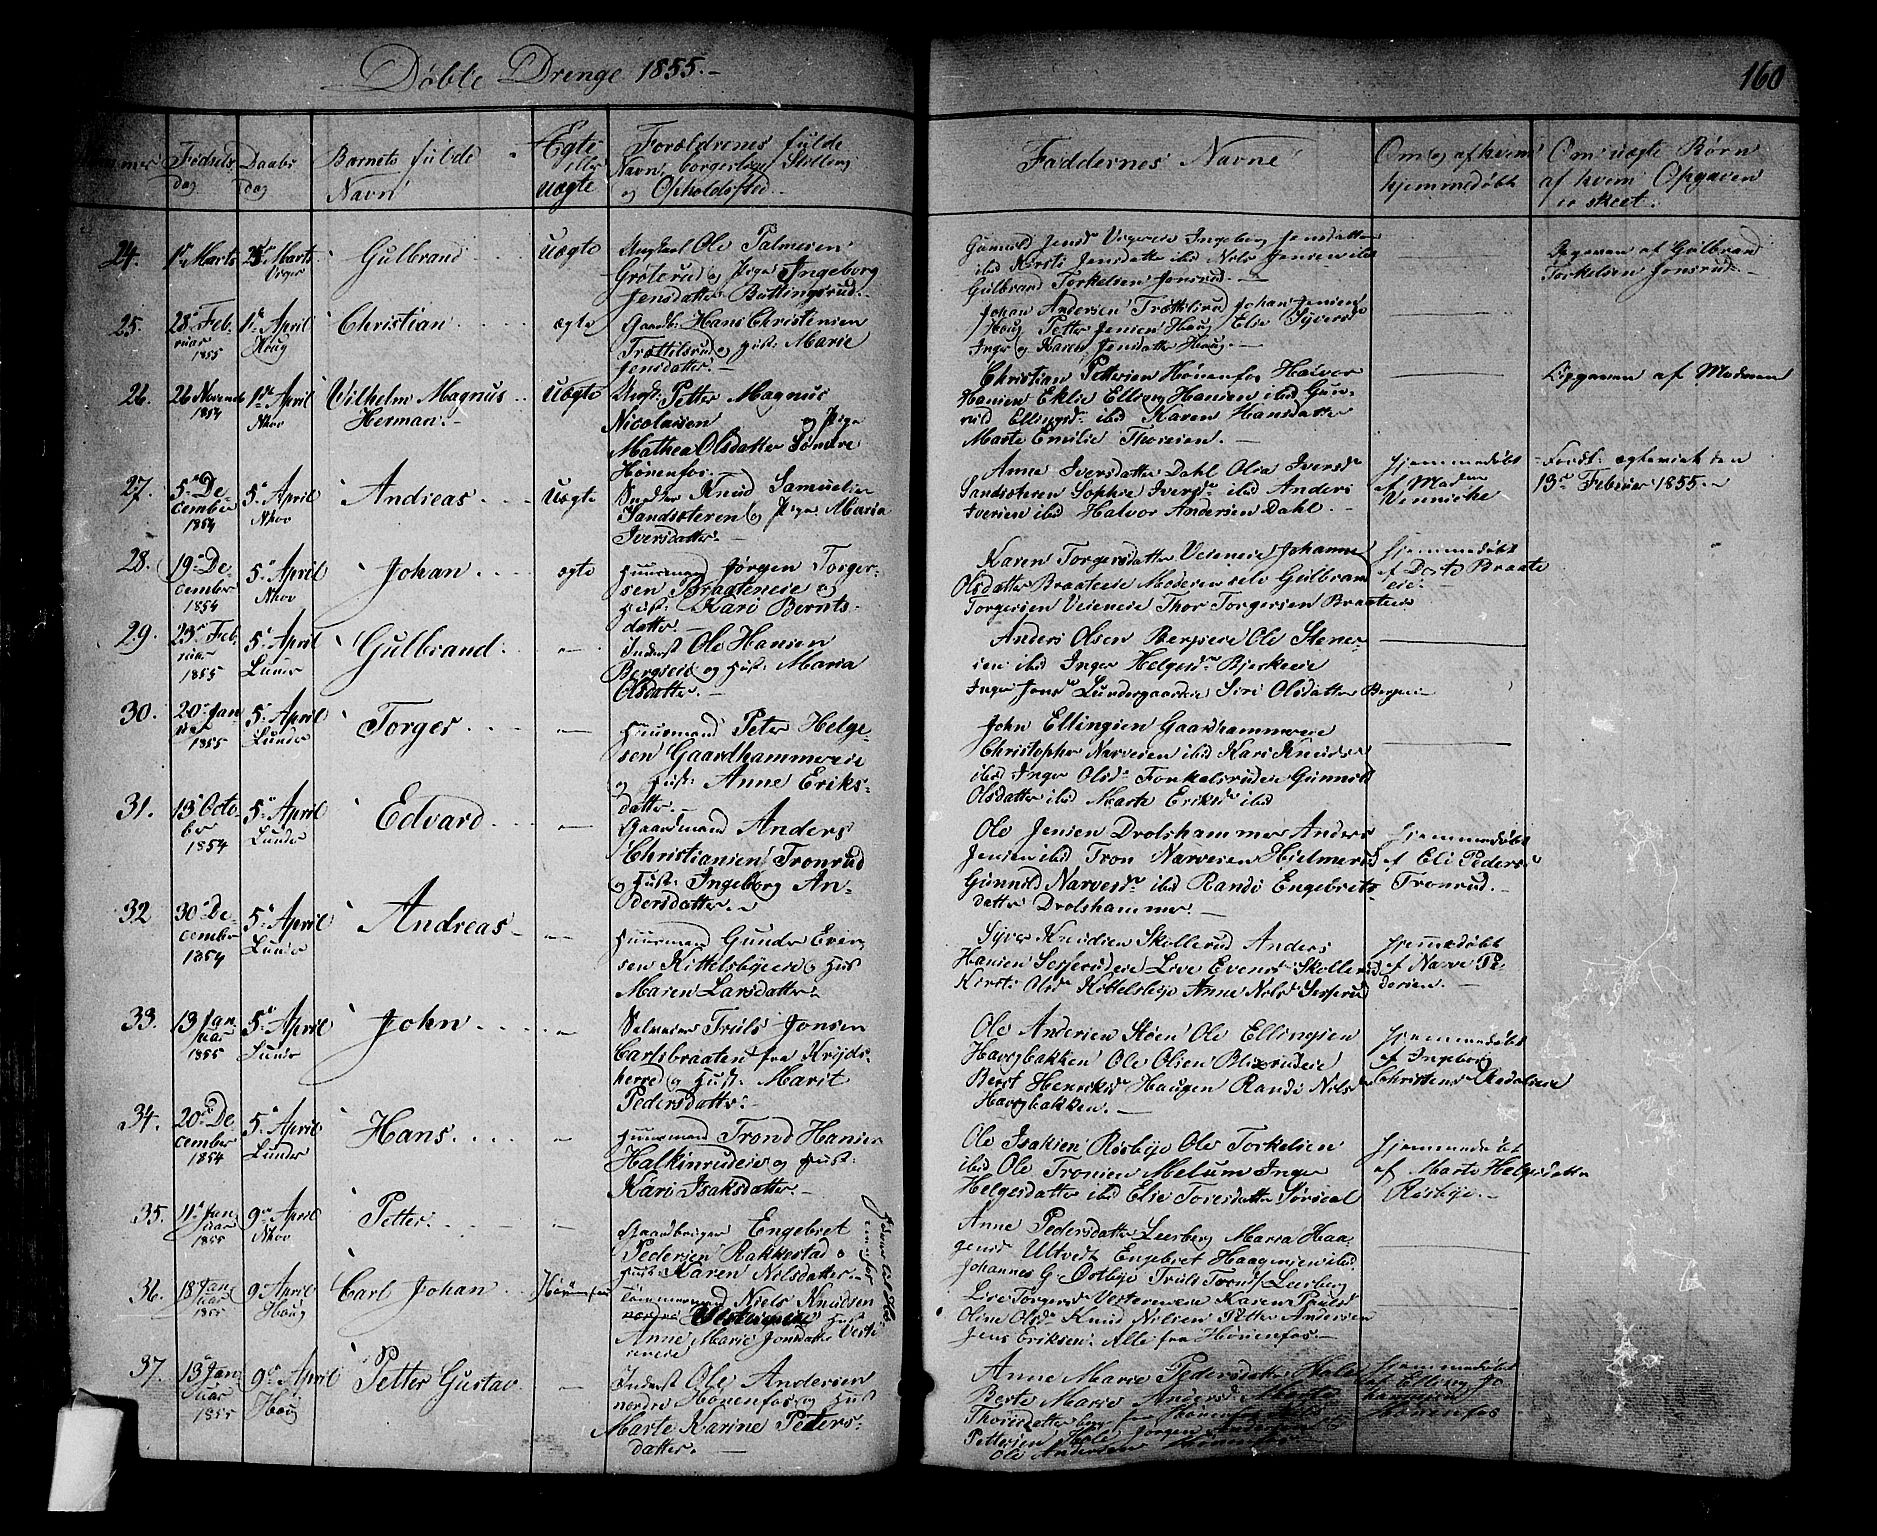 Døbte Drenge 1855.-
160
Fødsels
dag
Daabs
dag
Barnets fulde
Navn
Egte
eller
uægte
Forældrenes fulde
Navn, borgerlige Stilling
og Opholdssted.
Faddernes Navne
Om og af hvem
hjemmedøbt
Om uægte Børn
af hvem Opgaven
er skeet.
24.
1ste Marts
25de Marts
Gulbrand
Uægte
Ungkarl Ole Palmesen
Grøterud og Pige Ingeborg
Jensdatter Bøttingsrud.-
Gunild Jensd. Ingeborg Jensdatter
ibid Kirsti Jensdatter ibid Nils Jensen ibid
Gulbrand Torkelsen Jonsrud.-
Opgaven af Gulbrand
Torkelsen Jonsrud.-
25.
28de Feb
ruar
1855
1ste April
Haug
Christian
ægte
Gaardb. Hans Christensen
Trættilsrud og Hust. Marie
Jensdatter.
Johan Andersen Trættilsrud Johan Jensen
Haug Petter Jensen Haug Elie Syversd.
Inger og Karen Jensdatter Haug.-
26.
26 Novemb
1854
1ste April
Nhov
Vilhelm Magnus
Herman.-
Uægte
Ungk. Petter Magnus
Nicolaisen og Pige
Mathea Olsdatter Søndre
Hønenfos.-
Christian Pettersen Hønenfos Halvor
Hansen Eklie Elling Hansen ibid Gun-
rid Ellingsd. ibid Karen Hansdatter
Marte Emilie Thoresen.-
Opgaven af Moderen
27.
5te De-
cember
1854
5te April
Nhov
Andreas
Uægte
Knud Samuelsen
Sandsæteren og Pige Maria
Iversdatter.
Anne Iversdatter Dahl Olia Iversd.
Sandsæteren Sophie Iversd. ibid Anders
Iversen ibid Halvor Andersen Dahl.-
Hjemmedøbt
af Moder
Fordt. egteviet den
13de Februar 1855.-
28.
19de De-
cember
1854
5te April
Nhov
Johan
ægte
Huusmand Jørgen Torger-
sen Braateneie og
Hust. Kari Bernts-
datter.-
Karen Torgersdatter Veieneie Johanne
Olsdatter Braateeie Moderen selv Gulbrand
Torgersen Veieneie Thor Torgersen Braateeie
Hjemmedøbt
af Dorte Braate
eie.
29.
23de Feb
ruar
1855
5te April
Lunder
Gulbrand
-"-
Inderst Ole Hansen
Bergseie og Hust. Maria
Olsdatter.-
Anders Olsen Bergseie Ole Stener-
sen ibid Inger Helgesd. Bjerkeeie
Inger Jonsd. Lundergaardeie Siri Olsdatter Bergseie
30.
20de Jan
uar
1855
5te April
Lunder
Torger
-"-
Huusmand Peter Helge-
sen Gaardhammereie
og Hust. Anne Eriks-
datter.-
John Ellingsen Gaardhammereie
Christopher Narvesen ibid Kari Knudsd.
ibid Inger Olsd. Torkelsrudeie Gunnild
Olsdatter ibid Marte Eriksd. ibid
31.
13de Octo
ber
1854
5te April
Lunder
Edvard
-"-
Gaardmand Anders
Christiansen Tronrud
og Hust. Ingeborg An-
dersdatter.-
Ole Jensen Drolshammer Anders
Jensen ibid Tron Narvesen Hjelmerud
Gunnild Narvesd. ibid Randi Engebrets-
datter Drolshammer.-
Hjemmedøbt
af Eli Pedersd.
Tronrud.-
32
30de De-
cember
1854
5te April
Lunder
Andreas
-"-
Huusmand Gunder Even-
sen Kittelsbyeie og Hus
Maren Larsdatter.
Syver Knudsen Skollerud Anders
Hansen Sørserudeie Live Evensd. Skollerud
Kirsti Olsd. Kittelsbye Anne Nilsd.
Hjemmedøbt
af Narve Pe-
dersen.-
33.
13 Jan
uar
1855
5te April
Lunder
John
-"-
Selveier Truls Jonsen
Carlsbraaten fra Krøds-
herred og Hust. Marit
Pedersdatter.
Ole Andersen Støen Ole Ellingsen
Haugbakken Ole Olsen
Berit Henriksd. Haugen Randi Nilsd.
Haugbakken.-
Hjemmedøbt
af Ingeborg
Christensd.
34.
20de De-
cember
1854
5te April
Lunder
Hans
-"-
Huusmand Trond Hansen
Halkinrudeie og Hust.
Kari Isaksdatter.-
Ole Isaksen Røsbye Ole Torkelsen
ibid Ole Tronsen Melum Inger
Helgesdatter ibid Elie Toresdatter Sørsdal
Hjemmedøbt
af Marte Helgesdatter
Røsbye.-
35.
11te Jan
uar
1855
9de April
Nhov
Petter
-"-
Gaardbruger Engebret
Pedersen Rakkestad og
Hust. Karen Nilsdatter.-
Anne Pedersdatter Leerberg Maria Haa-
gensd. Ultvedt Engebret Haagensen ibid
Johannes G. Østbye Truls Trondsen Leerberg
36.
18 Jan
uar
1855
9de April
Haug
Carl Johan
Hønenfos
Tømmermand Niels Knudsen
nordre Vesterneie Hust
Anne Marie Jonsdatter
Live Torgersd. Vesterneie Karen Poulsd.
Oline Olsd. Knud Nilsen Petter Andersen
Jens Eriksen. Alle fra Hønenfos.-
37.
13de Jan
uar
1855
9de April
Haug
Petter Gustav
-"-
Inderst Ole Andersen
nordre Hønenfos og Hust
Marte Karine Peders-
datter.-
Anne Marie Pedersdatter Hole
Berte Marie Andersd.
Thoresdatter
Pettersen Hole Jørgen
Ole Andersen
Hjemmedøbt
af Elling Jo
hannesen
Hønenfos